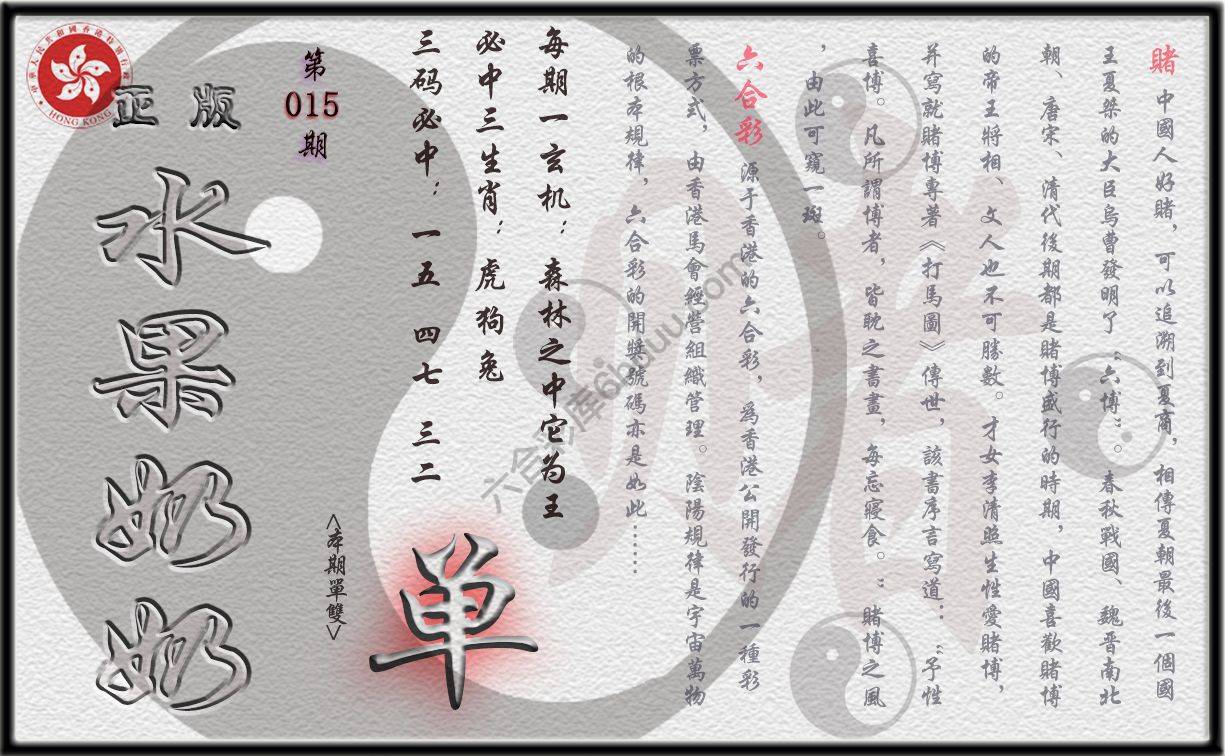 賭 中國人好賭，可以追溯到夏商，相傳夏朝最後一個國
王夏桀的大臣烏曹發明了“六博”。春秋戰國、魏晉南北
朝、唐宋、清代後期都是賭博盛行的時期，中國喜歡賭博
的帝王將相、文人也不可勝數。才女李清照生性愛賭博，
并寫就賭博專著《打馬圖》傳世，該書序言寫道：“予性
喜博。凡所謂博者，皆耽之書畫，每忘寢食。”賭博之風
，由此可窺一斑。
六合彩 源于香港的六合彩，爲香港公開發行的一種彩
票方式，由香港馬會經營組織管理。陰陽規律是宇宙萬物
的根本規律，六合彩的開獎號碼亦是如此……
每期一玄机：森林之中它为王
必中三生肖：虎狗兔
三码必中：一五 四七 三二
第
015
期
<本期單雙>
单
正版
水果奶奶
中華人民共和國香港特別行政區
HONG KONG
六合彩库6huuu.com